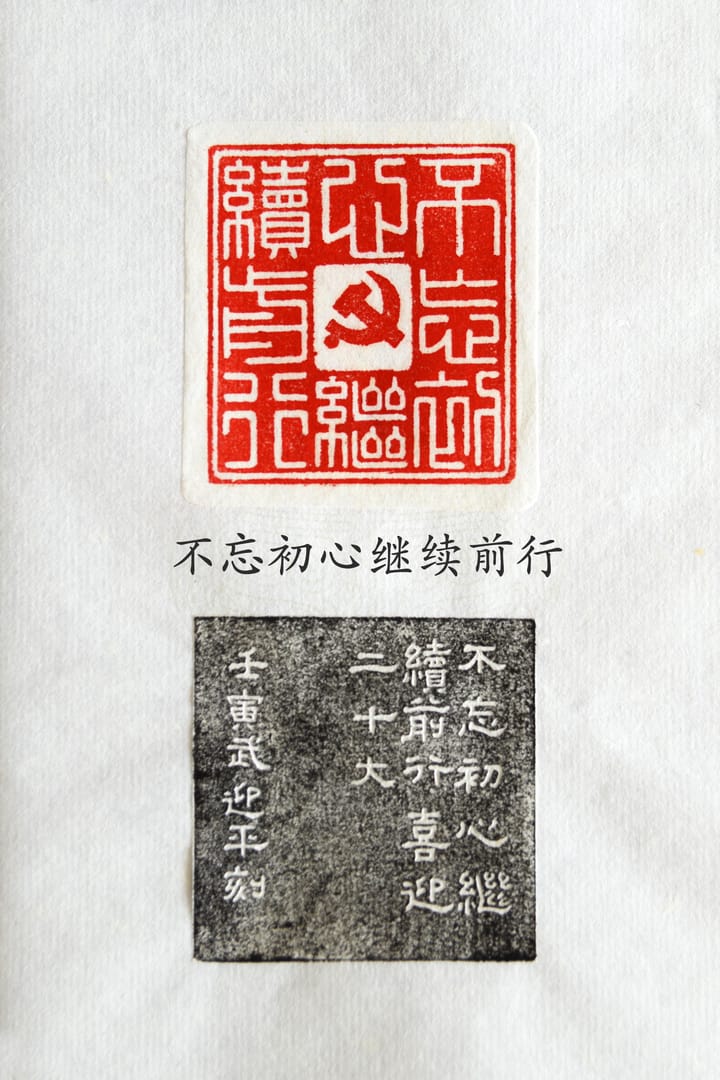 不忘初
心繼
續前行
不忘初心继续前行
不忘初心繼
續前行喜迎
二十大
壬寅武迎平刻